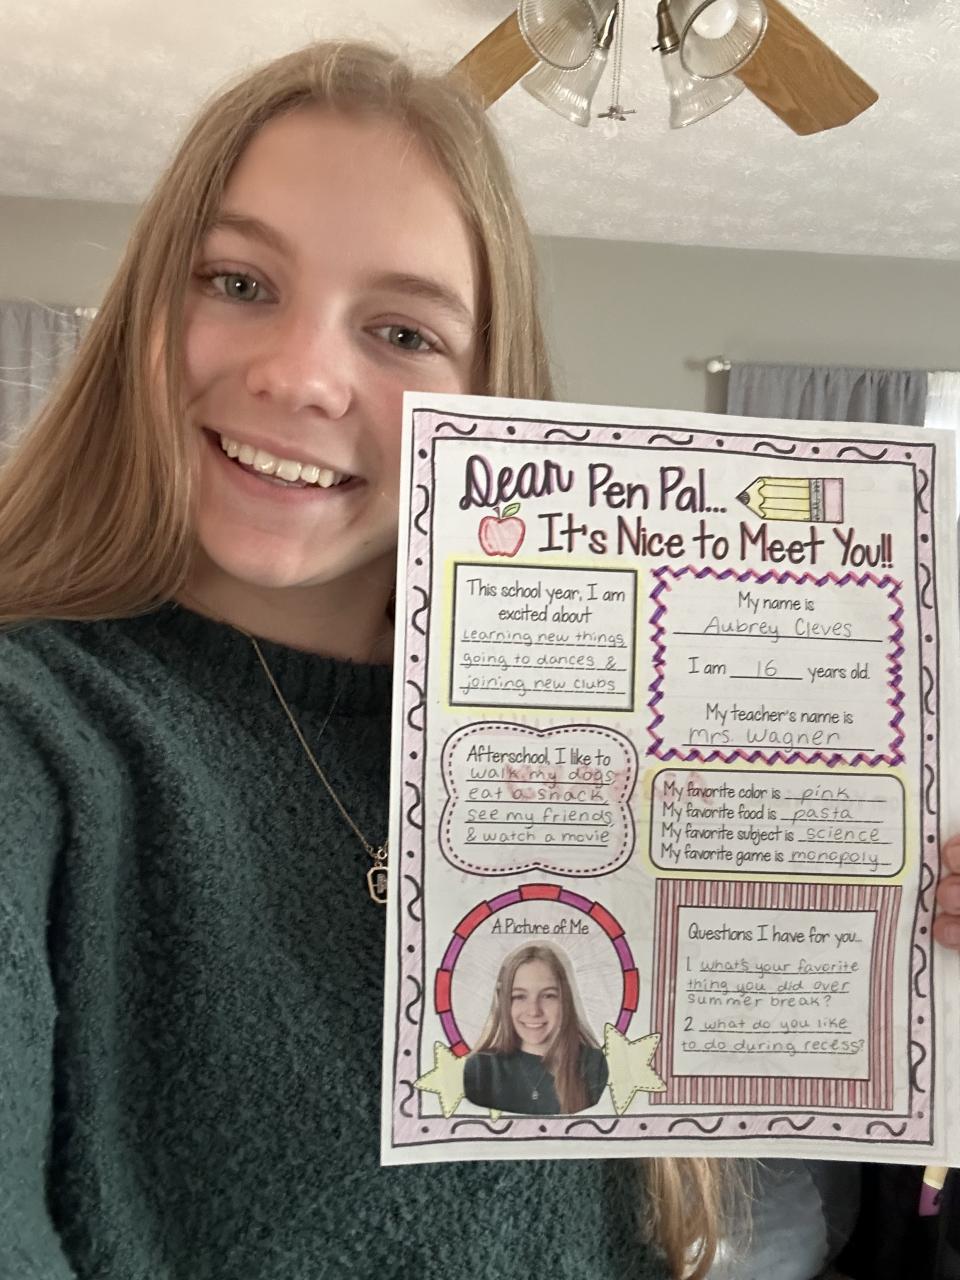 Dear Pen Pal...
It's Nice to Meet You!!
This school year, I am
excited about
Learning new things,
going to dances &
joining new clubs
My name is
Aubrey Cleves
I am 16 years old.
My teacher's name is
Mrs. Wagner
Afterschool, I like to
walk my dogs,
eat a snack,
see my friends,
& watch a movie
My favorite color is pink
My favorite food is pasta
My favorite subject is science
My favorite game is monopoly
A Picture of Me
Questions I have for you...
1 what's your favorite
thing you did over
summer break?
2 what do you like
to do during recess?